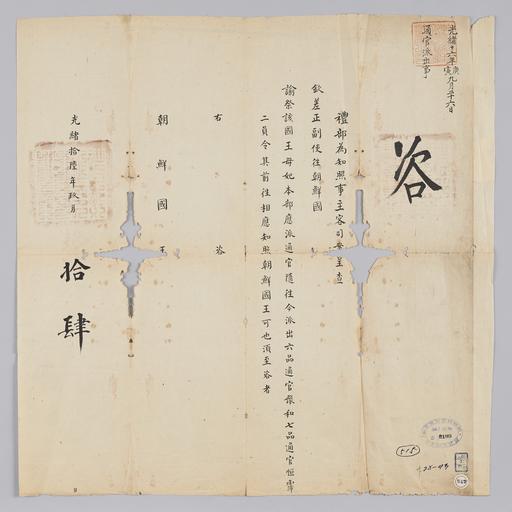 光緒十六年庚寅九月廿六日
通官派出事
咨
禮部為知照事主客司案呈查
欽差正副使往朝鮮國
諭祭該國王母妃本部應派通官隨往今派出六品通官
二員令其前往相應知照朝鮮國王可也須至咨者
右咨
朝鮮國王
光緒拾陸年玖月
拾肆
515
25-43